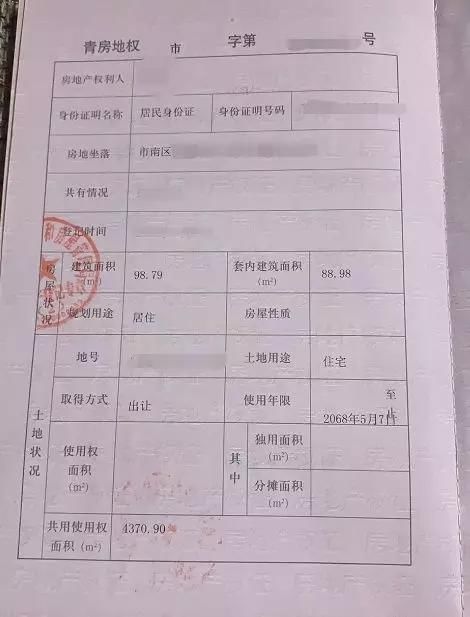 青房地权 市 字第 号
房地产权利人
身份证明名称 居民身份证 身份证明号码
房地坐落 市南区
共有情况
登记时间
房屋状况
建筑面积(m²) 98.79 套内建筑面积(m²) 88.98
规划用途 居住 房屋性质
土地状况
地号 土地用途 住宅
取得方式 出让 使用年限 至2068年5月7日止
使用权面积(m²) 其中 独用面积(m²)
分摊面积(m²)
共用使用权面积(m²) 4370.90